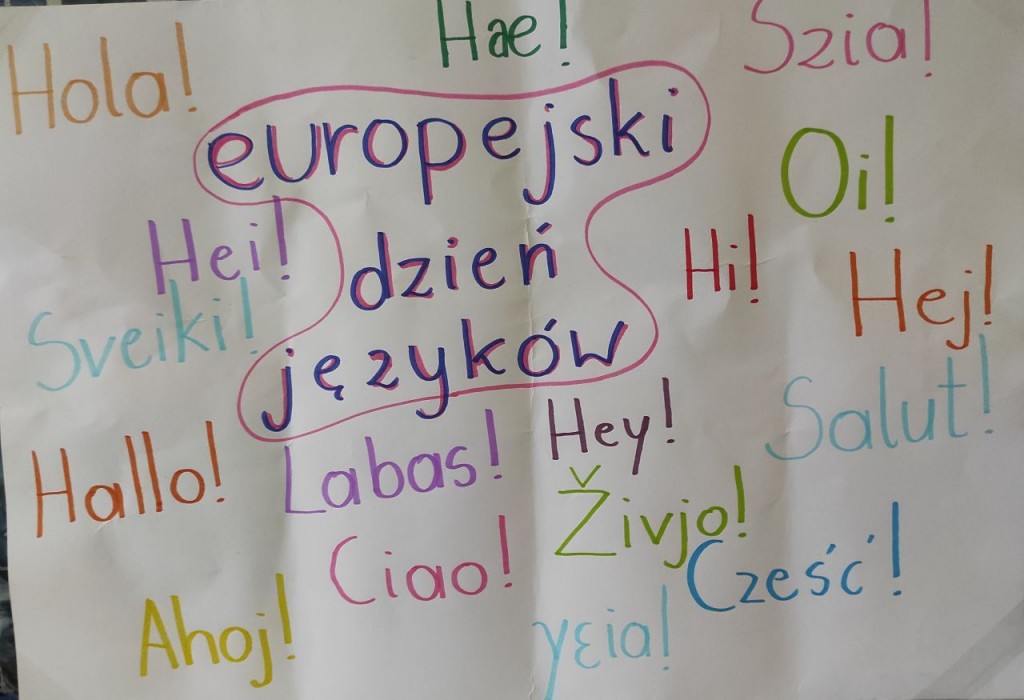 Hola!
Hae!
Szia!
europejski
dzień
języków
Oi!
Hei!
Hi!
Hej!
Sveiki!
Salut!
Hallo!
Labas!
Hey!
Živjo!
Ciao!
Cześć!
Ahoj!
γεια!